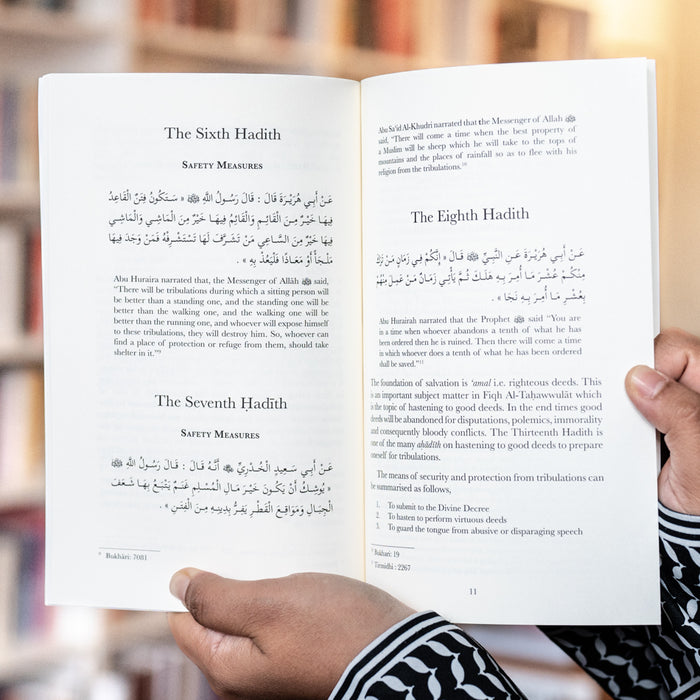 The Sixth Hadith
SAFETY MEASURES
عَنْ أَبِي هُرَيْرَةَ قَالَ : قَالَ رَسُولُ اللَّهِ ﷺ « سَتَكُونُ فِتَنٌ الْقَاعِدُ
فِيهَا خَيْرٌ مِنَ الْقَائِمِ وَالْقَائِمُ فِيهَا خَيْرٌ مِنَ الْمَاشِي وَالْمَاشِي
فِيهَا خَيْرٌ مِنَ السَّاعِي مَنْ تَشَرَّفَ لَهَا تَسْتَشْرِفْهُ فَمَنْ وَجَدَ فِيهَا
مَلْجَأً أَوْ مَعَاذًا فَلْيَعُذْ بِهِ » .
Abu Huraira narrated that, the Messenger of Allāh ﷺ said,
“There will be tribulations during which a sitting person will
be better than a standing one, and the standing one will be
better than the walking one, and the walking one will be
better than the running one, and whoever will expose himself
to these tribulations, they will destroy him. So, whoever can
find a place of protection or refuge from them, should take
shelter in it.”⁹
The Seventh Ḥadīth
SAFETY MEASURES
عَنْ أَبِي سَعِيدٍ الْخُدْرِيِّ ﷺ أَنَّهُ قَالَ : قَالَ رَسُولُ اللَّهِ ﷺ
« يُوشِكُ أَنْ يَكُونَ خَيْرَ مَالِ الْمُسْلِمِ غَنَمٌ يَتْبَعُ بِهَا شَعَفَ
الْجِبَالِ وَمَوَاقِعَ الْقَطْرِ يَفِرُّ بِدِينِهِ مِنَ الْفِتَنِ » .
⁹ Bukhāri: 7081
Abu Sa'id Al-Khudri narrated that the Messenger of Allah ﷺ
said, “There will come a time when the best property of
a Muslim will be sheep which he will take to the tops of
mountains and the places of rainfall so as to flee with his
religion from the tribulations.¹⁰
The Eighth Hadith
عَنْ أَبِي هُرَيْرَةَ عَنِ النَّبِيِّ ﷺ قَالَ « إِنَّكُمْ فِي زَمَانٍ مَنْ تَرَكَ
مِنْكُمْ عُشْرَ مَا أُمِرَ بِهِ هَلَكَ ثُمَّ يَأْتِي زَمَانٌ مَنْ عَمِلَ مِنْهُمْ
بِعُشْرِ مَا أُمِرَ بِهِ نَجَا » .
Abu Hurairah narrated that the Prophet ﷺ said “You are
in a time when whoever abandons a tenth of what he has
been ordered then he is ruined. Then there will come a time
in which whoever does a tenth of what he has been ordered
shall be saved.”¹¹
The foundation of salvation is ‘amal i.e. righteous deeds. This
is an important subject matter in Fiqh Al-Taḥawwulāt which
is the topic of hastening to good deeds. In the end times good
deeds will be abandoned for disputations, polemics, immorality
and consequently bloody conflicts. The Thirteenth Hadith is
one of the many aḥādīth on hastening to good deeds to prepare
oneself for tribulations.
The means of security and protection from tribulations can
be summarised as follows,
1. To submit to the Divine Decree
2. To hasten to perform virtuous deeds
3. To guard the tongue from abusive or disparaging speech
Bukhari: 19
Tirmidhi : 2267
11